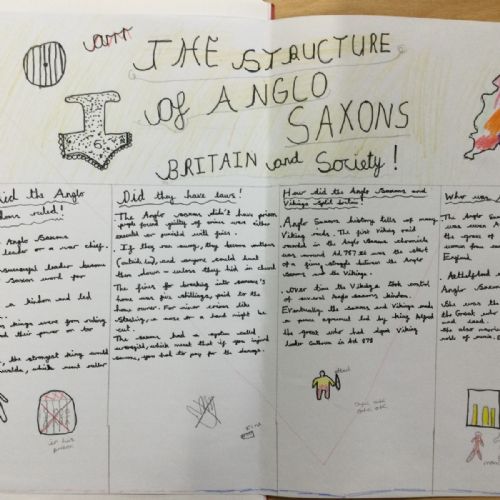 THE STRUCTURE
of ANGLO
SAXONS
BRITAIN and Society!
did the Anglo
ruled?
Anglo Saxons
leader or a war chief.
successful leader became
Saxon word for
a kingdom and led
kings were from ruling
their power on to
the strongest king would
which meant ruler
in his
Did they have laws!
The Anglo saxons didn't have prison
people found guilty of crimes were either
or punished with fines.
If they ran away, they became outlaws
(outside law), and anyone could hunt
them down - unless they hid in church
The fines for breaking into someone's
home was five shillings, paid to the
home owner. For minor crimes like
Stealing, a nose or a hand might be
cut.
The saxons had a system called
wergild, which meant that if you injured
someone, you had to pay for the damage.
fine
How did the Anglo Saxons and
Vikings split
Anglo Saxons history tells of many
Viking raids. The first Viking raid
recorded in the Anglo Saxons chronicle
was around Ad 787. It was the start
of a fierce struggle between the Anglo
Saxons and the Vikings.
over time the Vikings took control
of several Anglo Saxons
Eventually the Saxons and Vikings made
a peace agreement led by King Alfred
the great who had beat Viking
leader Guthrum in Ad 878
Who was
The Anglo
England
Aethelflaed
Anglo Saxons
She was the
the Great who
and
She also
north of